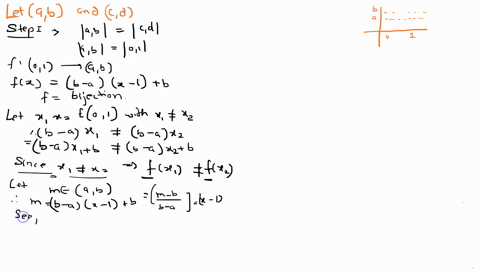 Let (a,b) and (c,d)
Step I > |a,b| = |c,d|
|a,b| = |0,1|
f: (0,1) → (a,b)
f(x) = (b-a) (x-1) + b
f = bijection.
Let x₁ x₂ E (0,1) with x₁ ≠ x₂
(b-a) x₁ ≠ (b-a) x₂
= (b-a) x₁ + b ≠ (b-a) x₂ + b
Since x₁ ≠ x₂ → f(x₁) ≠ f(x₂)
Let m ∈ (a,b)
∴ m = (b-a) (x-1) + b = [m-b / b-a] = (x-1)
b
a
0 1